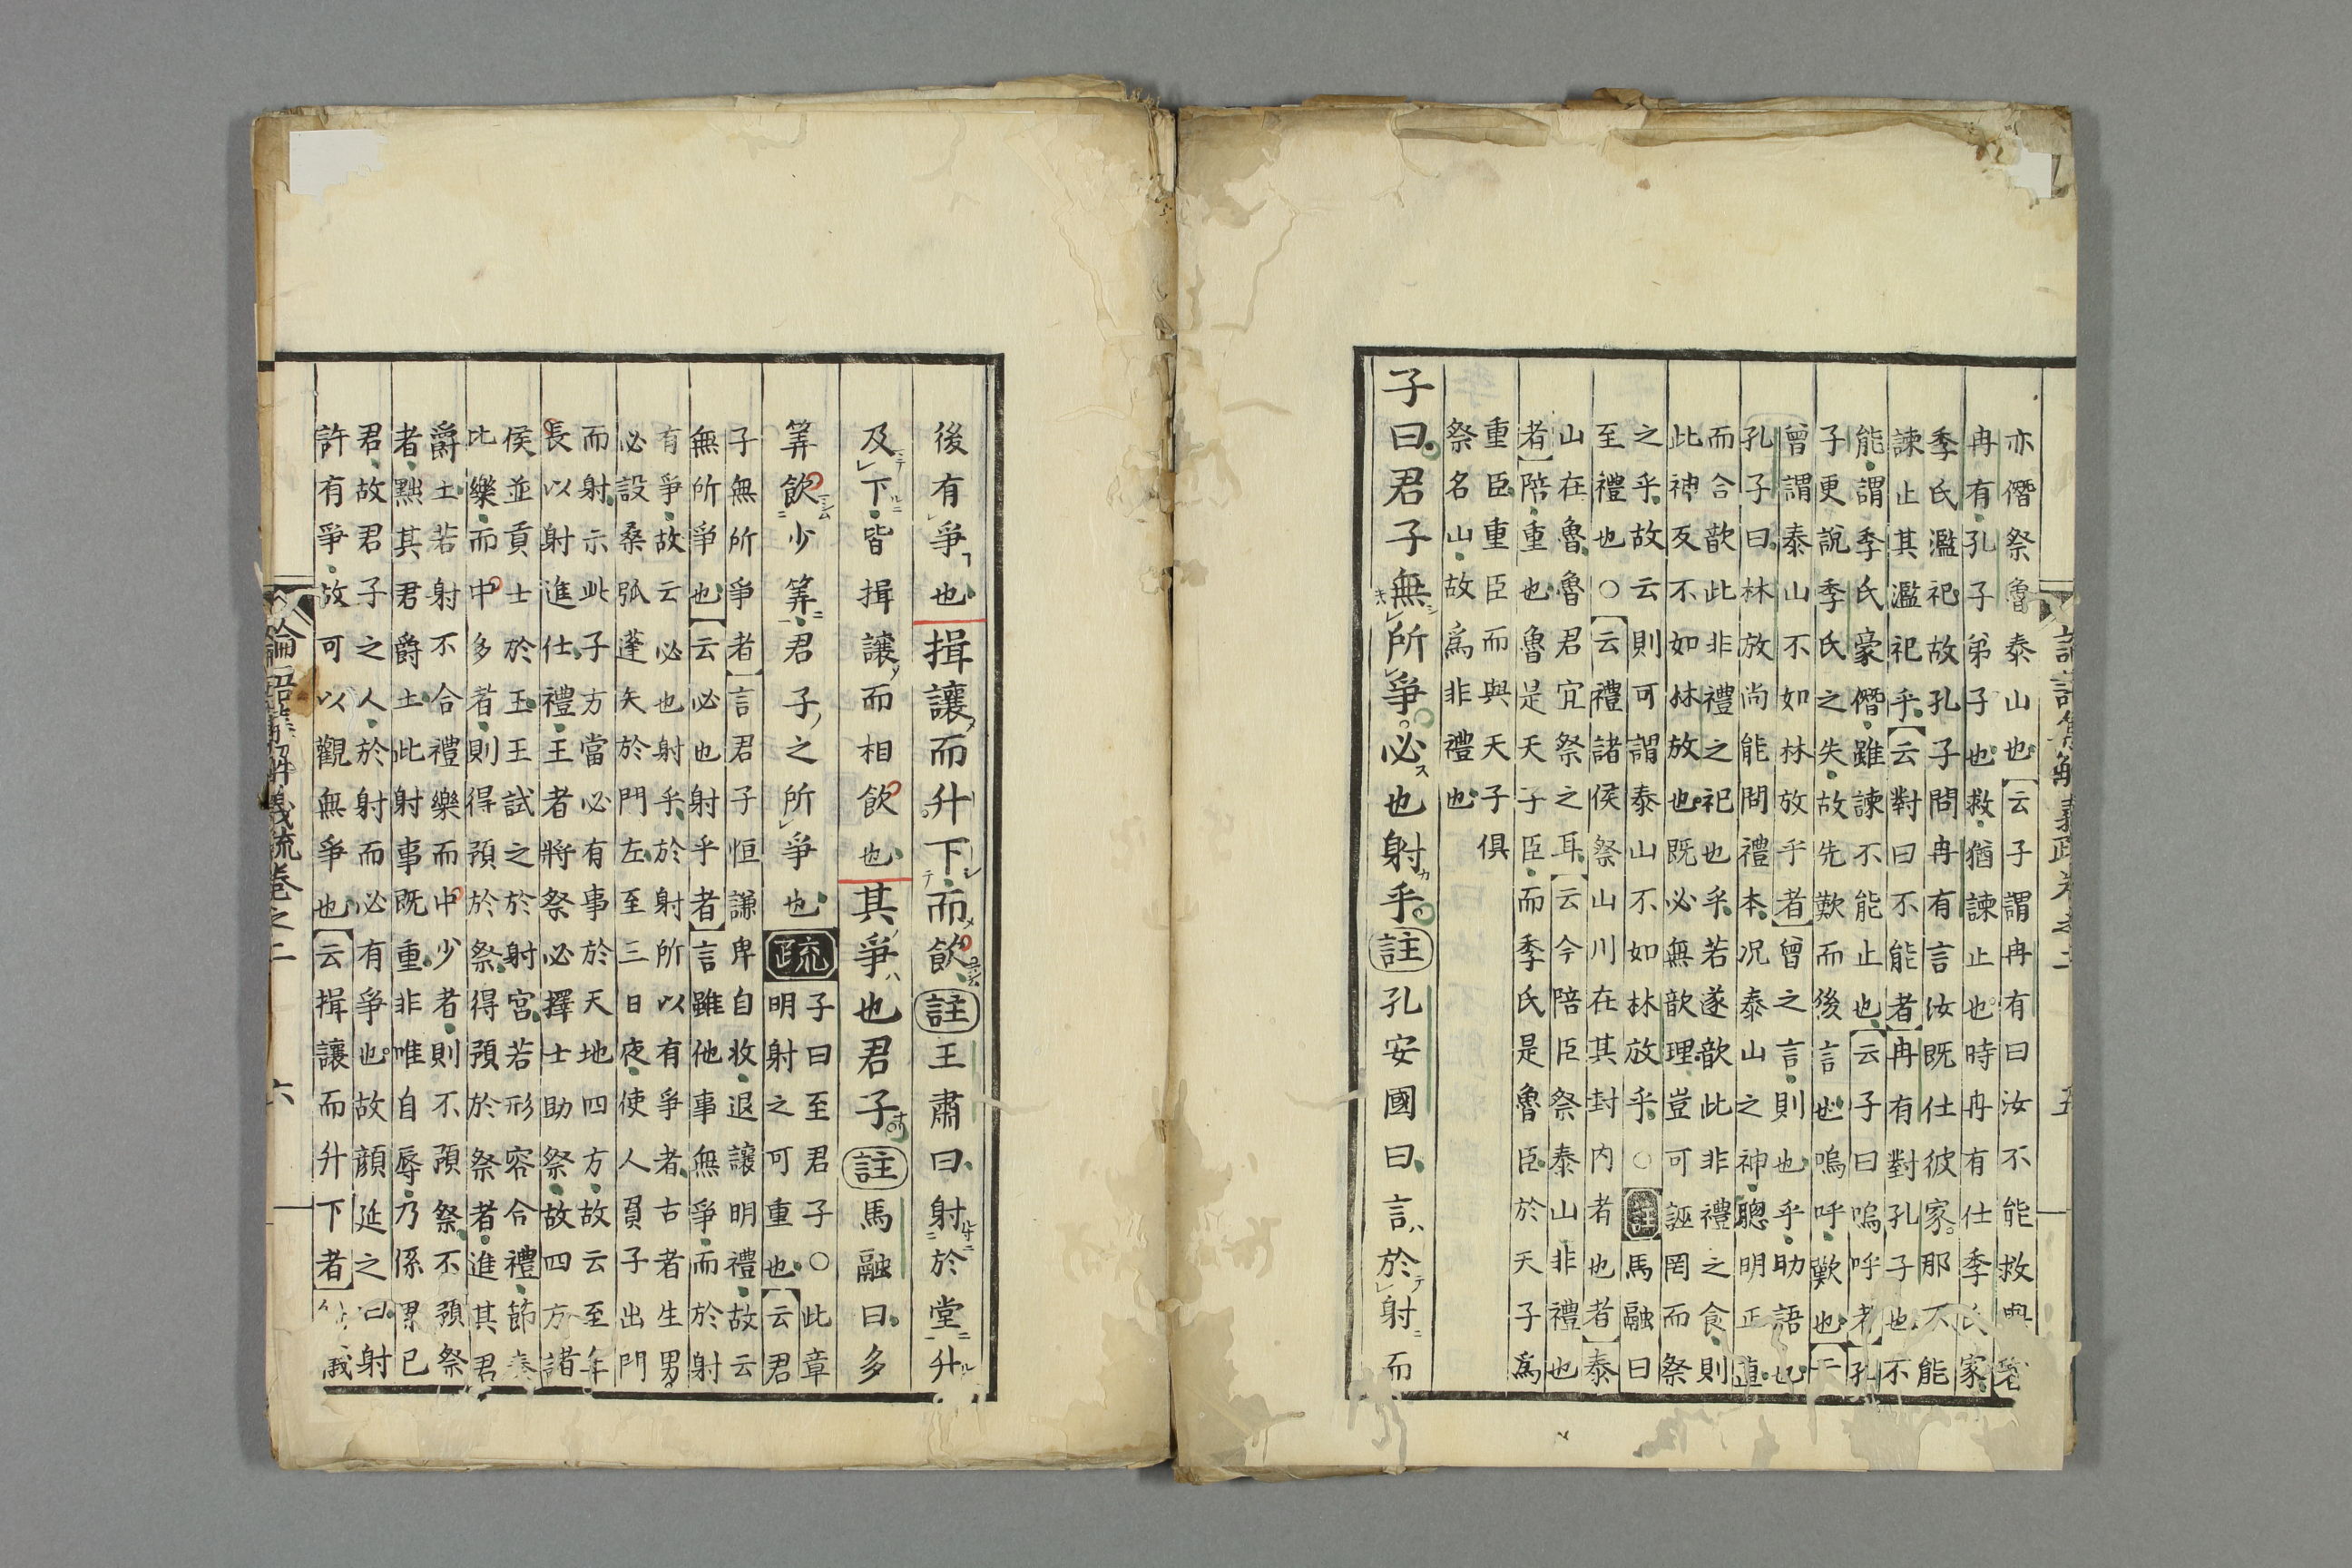 論語集解義疏卷之二 五
亦僭祭魯泰山也【云子謂冉有曰汝不能救與者
冉有孔子弟子也救猶諫止也時冉有仕季氏家
季氏濫祀故孔子問冉有言汝既仕彼家那不能
諫止其濫祀乎【云對曰不能者】冉有對孔子也不
能謂季氏豪僭雖諫不能止也【云子曰嗚呼者】孔
子更說季氏之失故先歎而後言也嗚呼歎也【云
曾謂泰山不如林放乎者】曾之言則也乎助語也
孔子曰林放尚能問禮本况泰山之神聰明正直
而合歆此非禮之祀也乎若遂歆此非禮之食則
此神反不如林放也既必無歆理豈可誣罔而祭
之乎故云則可謂泰山不如林放乎○註馬融曰
至禮也○【云禮諸侯祭山川在其封内者也者】泰
山在魯魯君宜祭之耳【云今陪臣祭泰山非禮也
者】陪重也魯是天子臣而季氏是魯臣於天子爲
重臣重臣而與天子俱
祭名山故爲非禮也
子曰君子無所爭必也射乎註孔安國曰言於射而
後有爭也揖讓而升下而飲註王肅曰射於堂升
及下皆揖讓而相飲也其爭也君子註馬融曰多
筭飲少筭君子之所爭也疏子曰至君子○此章
明射之可重也【云君
子無所爭者】言君子恒謙卑自收退讓明禮故云
無所爭也【云必也射乎者】言雖他事無爭而於射
有爭故云必也射乎於射所以有爭者古者生男
必設桑弧蓬矢於門左至三日夜使人負子出門
而射示此子方當必有事於天地四方故云至年
長以射進仕禮王者將祭必擇士助祭故四方諸
侯並貢士於王王試之於射宮若形容合禮節奏
比樂而中多者則得預於祭得預於祭者進其君
爵土若射不合禮樂而中少者則不預祭不預祭
者黜其君爵土此射事既重非唯自辱乃係累已
君故君子之人於射而必有爭也故顔延之曰射
許有爭故可以觀無爭也【云揖讓而升下者】
論語集解義疏卷之二 六